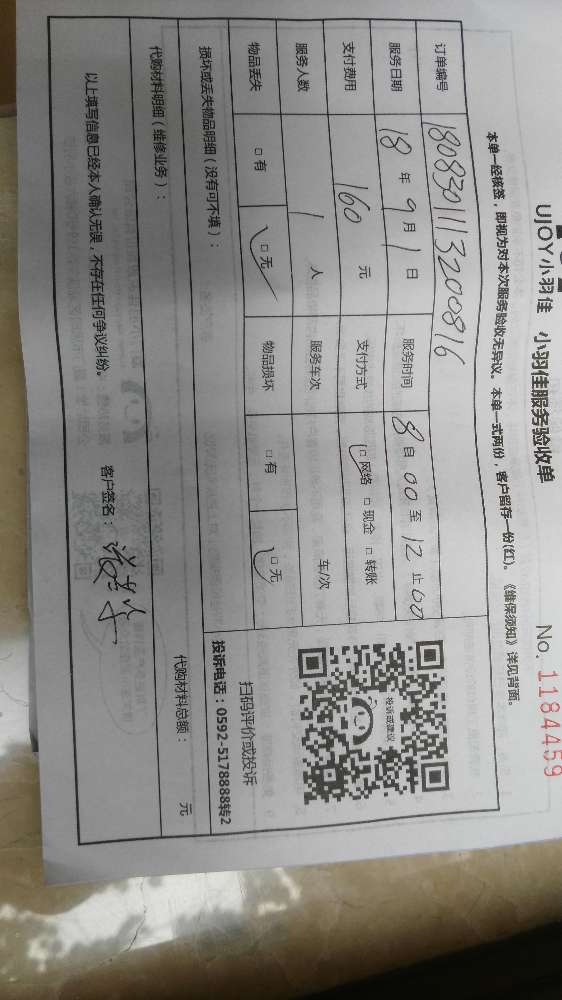 UJOY小羽佳 小羽佳服务验收单 No. 1184459
本单一经核签，即视为对本次服务验收无异议。本单一式两份，客户留存一份(红)。《维保须知》详见背面。
订单编号 1808301113200816
服务日期 18 年 9 月 1 日 服务时间 8 自 00 至 12 止 00
支付费用 160 元 支付方式 □ 网络 □ 现金 □ 转账
服务人数 1 人 服务车次 车/次
物品丢失 □ 有 □ 无 物品损坏 □ 有 □ 无
投诉或建议
扫码评价或投诉
投诉电话：0592-5178888转2
损坏或丢失物品明细（没有可不填）：
代购材料明细（维修业务）： 代购材料总额： 元
以上填写信息已经本人确认无误，不存在任何争议纠纷。 客户签名：